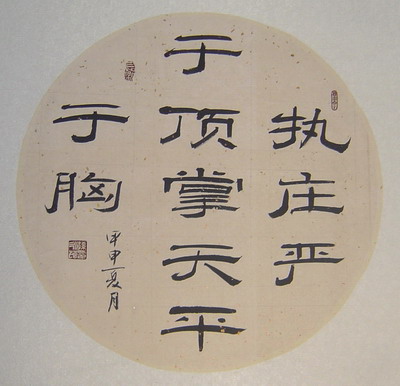 执庄严
于顶掌天平
于胸
甲申夏月